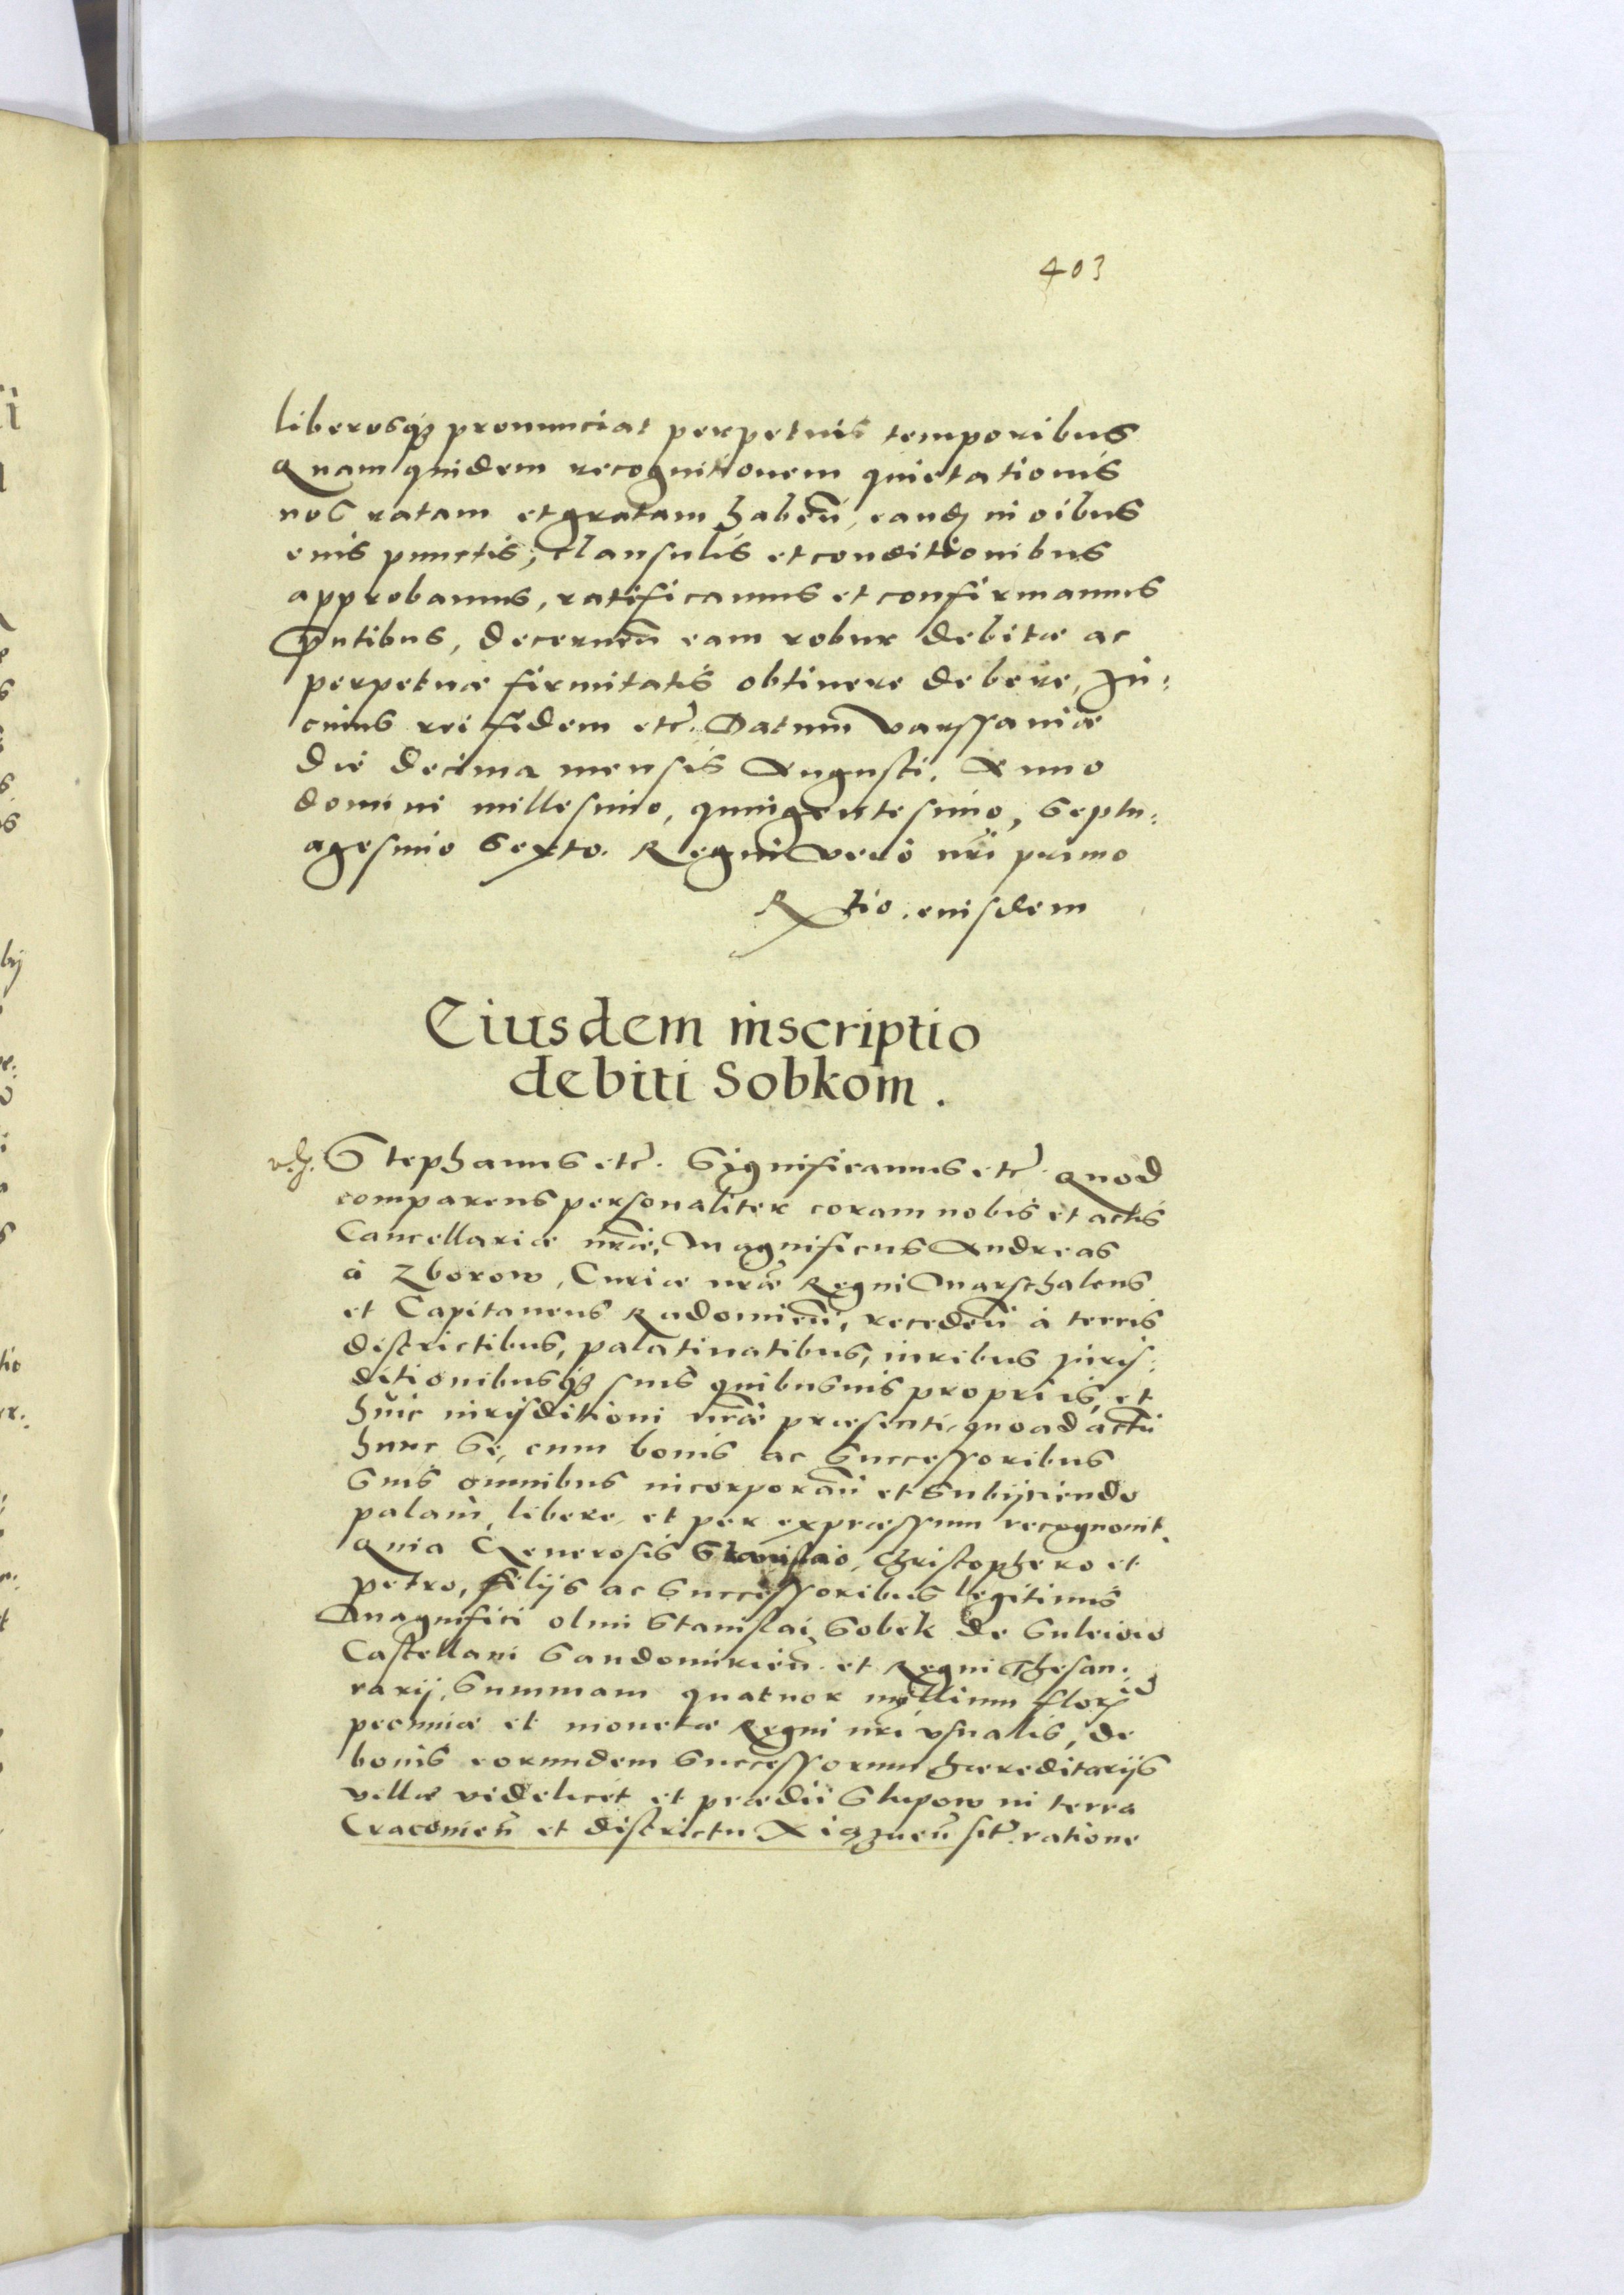 403
liberosqꝫ pronunciat perpetuis temporibus
Quam quidem recognitionem quietationis
nos ratam et gratam habeñ, eandꝫ in oibus
eius punctis, clausulis et conditionibus
approbamus, ratificamus et confirmamus
pñtibus, decerneñ eam robur debitæ ac
perpetuæ firmitatis obtinere debere, In:
cuius rei fidem etc̃. Datum Varssaniæ
die decima mensis Augusti, Anno
domini millesimo, quingentesimo, Septu:
agesimo Sexto. Regni vero nri primo
Rtio. eiusdem
Eiusdem inscriptio
debiti Sobkom.
Stephanus etc̃. Significamus etc̃. Quod
comparens personaliter coram nobis et actis
Cancellariæ nrãe, Magnificus Andreas
à Zborow, Curiæ nrãe Regni Marschalcus
et Capitaneus Radomieñ, recedeñ à terris
districtibus, palatinatibus, iuribus juris:
ditionibusqꝫ suis quibusuis proprijs, et
huic iurisditioni nrãe præsenti, quoad actũ
hunc se, cum bonis ac Successoribus
Suis omnibus incorporañ et Subijciendo
palam, libere, et per expræssum recognouit.
Quia Generosis Stanislao, Christophero et
petro, filijs ac Successoribus legitimis
Magnifici olim Stanislai Sobek de Suleiow
Castellani Sandomirieñ. et Regni Thesau:
rarij, Summam quatuor millium flor.
pecuniæ et monetæ Regni nri vsualis, de
bonis eorundem Successorum hæreditarijs
villæ videlicet et prædii Slupow in terra
Cracouieñ et districtu Xigzneñ sit̃. ratione